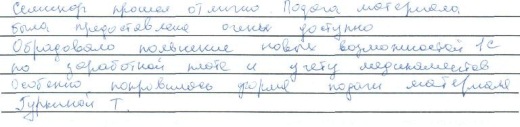 Семинар прошел отлично. Подача материала
была предоставлена очень доступно
Обрадовало появление новых возможностей 1С
по заработной плате и учету медикаментов
Особенно понравилась форма подачи материала
Гуркиной Т.